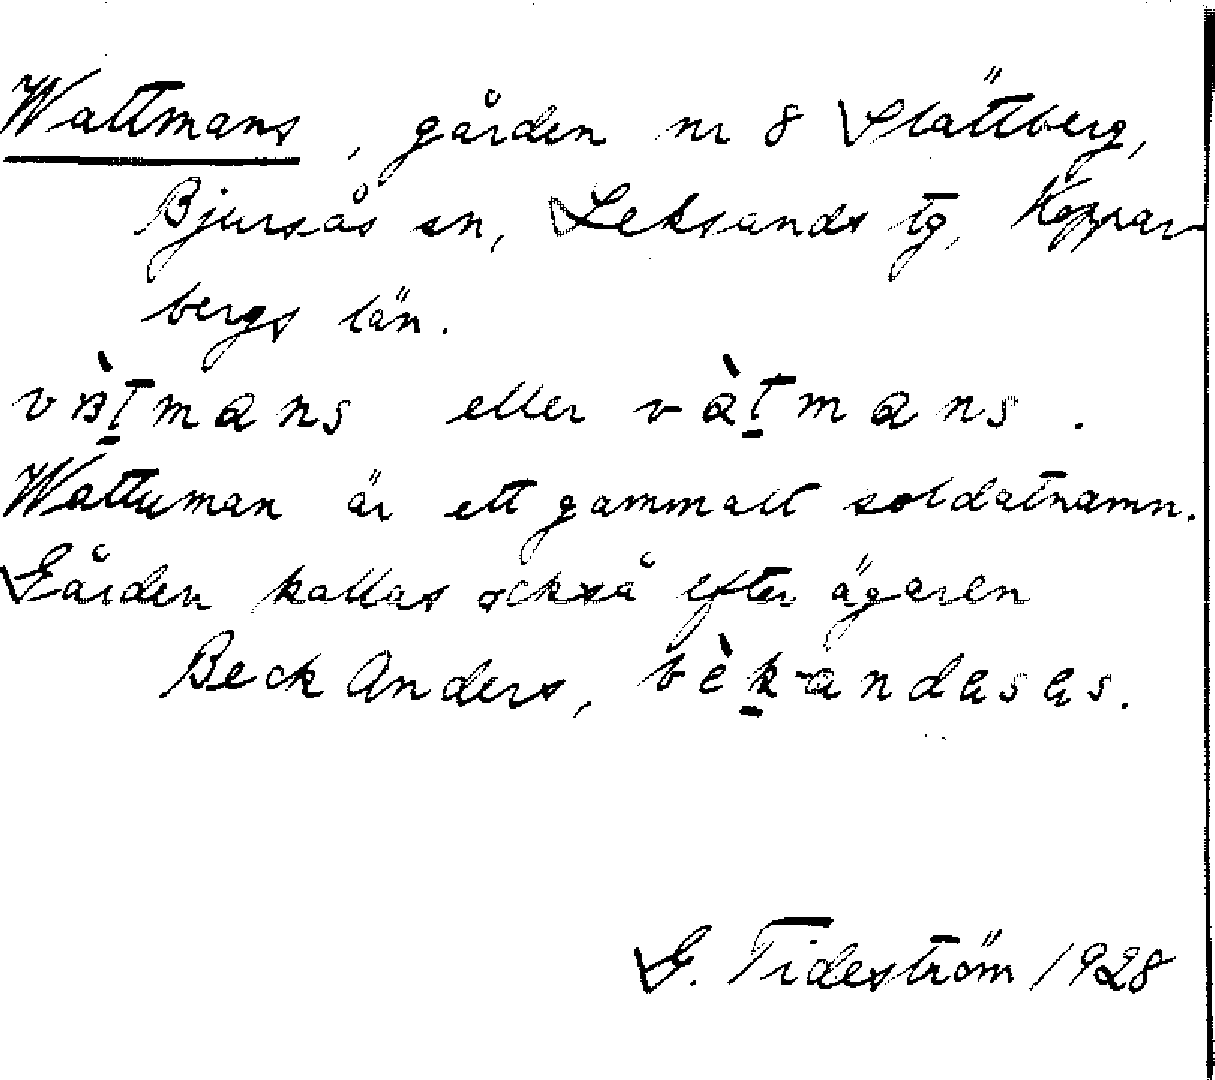 Wattmans, gården nr 8 Slättberg,
Bjursås sn, Leksands tg, Koppar-
bergs län.
vàt̠mans eller vàt̠mans.
Wattuman är ett gammalt soldatnamn.
Gården kallas också efter ägaren
Beck Anders, bèk̠-andəsəs.
G. Tideström 1928